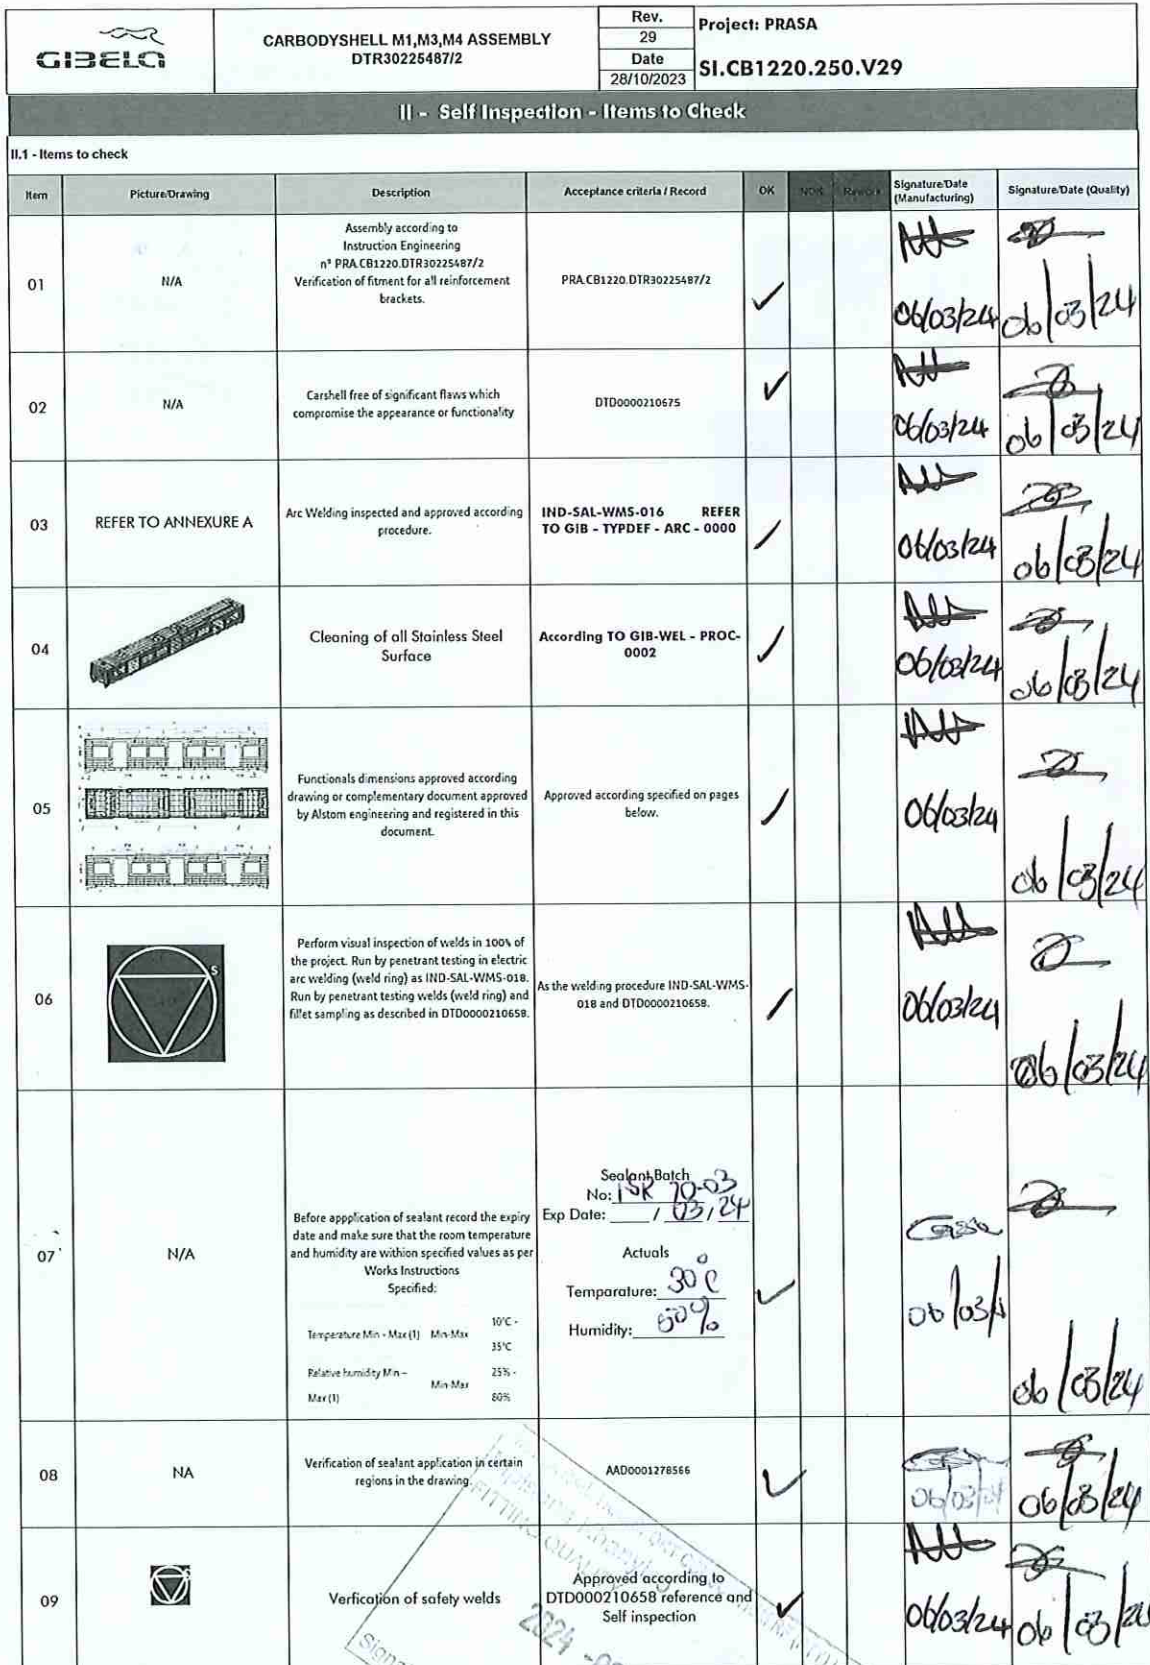 GIBELA
CARBODYSHELL M1,M3,M4 ASSEMBLY
DTR30225487/2
Rev.
29
Date
28/10/2023
Project: PRASA
SI.CB1220.250.V29
II - Self Inspection - Items to Check
II.1 - Items to check
Item Picture/Drawing Description Acceptance criteria / Record OK NOK Rework Signature/Date (Manufacturing) Signature/Date (Quality)
01
N/A
Assembly according to
Instruction Engineering
n° PRA.CB1220.DTR30225487/2
Verification of fitment for all reinforcement
brackets.
PRA.CB1220.DTR30225487/2
✓
06/03/24
06/03/24
02
N/A
Carshell free of significant flaws which
compromise the appearance or functionality
DTD0000210675
✓
06/03/24
06/03/24
03
REFER TO ANNEXURE A
Arc Welding inspected and approved according
procedure.
IND-SAL-WMS-016 REFER
TO GIB - TYPDEF - ARC - 0000
✓
06/03/24
06/03/24
04
Cleaning of all Stainless Steel
Surface
According TO GIB-WEL - PROC-
0002
✓
06/03/24
06/03/24
05
Functionals dimensions approved according
drawing or complementary document approved
by Alstom engineering and registered in this
document.
Approved according specified on pages
below.
✓
06/03/24
06/03/24
06
S
Perform visual inspection of welds in 100% of
the project. Run by penetrant testing in electric
arc welding (weld ring) as IND-SAL-WMS-018.
Run by penetrant testing welds (weld ring) and
fillet sampling as described in DTD0000210658.
As the welding procedure IND-SAL-WMS-
018 and DTD0000210658.
✓
06/03/24
06/03/24
07
N/A
Before appplication of sealant record the expiry
date and make sure that the room temperature
and humidity are withion specified values as per
Works Instructions
Specified:
Temperature Min - Max (1) Min-Max 10°C -
35°C
Relative humidity Min –
Max (1) Min-Max 25% -
80%
Sealant Batch
No: ISR 70-03
Exp Date: ____ / 03 / 24
Actuals
Temparature: 30°C
Humidity: 60%
✓
06/03/
06/03/24
08
NA
Verification of sealant application in certain
regions in the drawing.
AAD0001278566
✓
06/03/24
06/03/24
09
Verfication of safety welds
Approved according to
DTD000210658 reference and
Self inspection
✓
06/03/24
06/03/24
FITTING QUALITY
2024